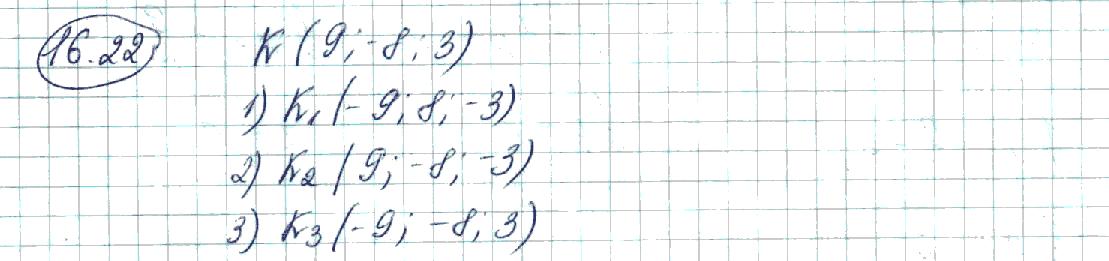 16.22 K (9; -8; 3)
1) K₁ (-9; 8; -3)
2) K₂ (9; -8; -3)
3) K₃ (-9; -8; 3)